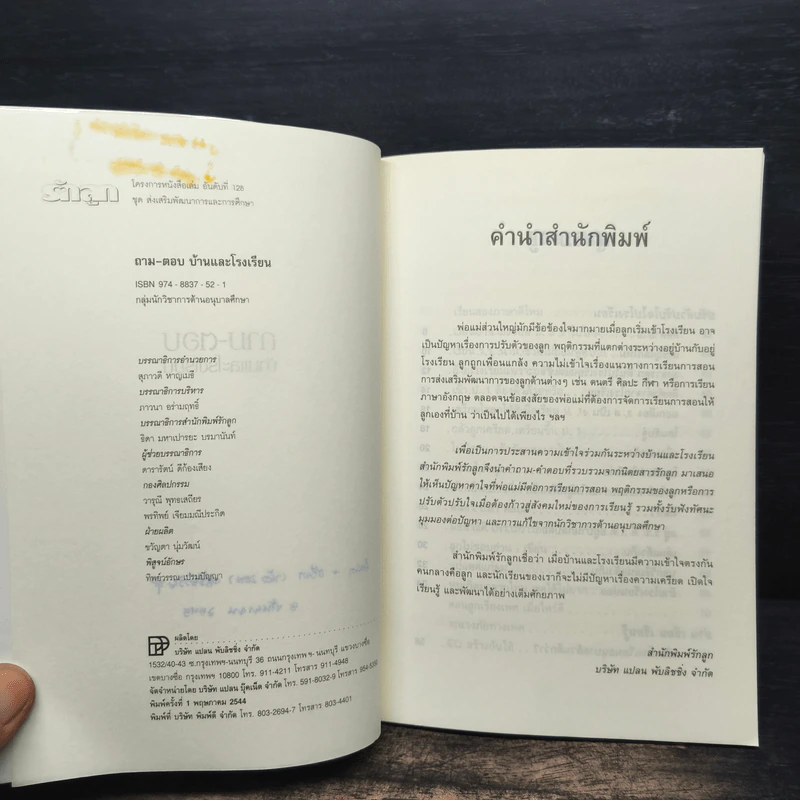 รักลูก
โครงการหนังสือเล่ม อันดับที่ 128
ชุด ส่งเสริมพัฒนาการและการศึกษา
ถาม-ตอบ บ้านและโรงเรียน
ISBN 974 - 8837 - 52 - 1
กลุ่มนักวิชาการด้านอนุบาลศึกษา
บรรณาธิการอำนวยการ
สุภาวดี หาญเมธี
บรรณาธิการบริหาร
ภาวนา อร่ามฤทธิ์
บรรณาธิการสำนักพิมพ์รักลูก
ธิดา มหาเปารยะ บรมานันท์
ผู้ช่วยบรรณาธิการ
ดารารัตน์ ดีก้องเสียง
กองศิลปกรรม
วารุณี พุทธเสถียร
พรทิพย์ เจียมมณีประกิต
ฝ่ายผลิต
ขวัญตา นุ่มวัฒน์
พิสูจน์อักษร
ทิพย์วรรณ เปรมปัญญา
ผลิตโดย
บริษัท แปลน พับลิชชิ่ง จำกัด
1532/40-43 ซ.กรุงเทพฯ-นนทบุรี 36 ถนนกรุงเทพ ฯ- นนทบุรี แขวงบางซื่อ
เขตบางซื่อ กรุงเทพฯ 10800 โทร. 911-4211 โทรสาร 911-4948
จัดจำหน่ายโดย บริษัท แปลน บุ๊คเน็ต จำกัด โทร. 591-8032-9 โทรสาร
พิมพ์ครั้งที่ 1 พฤษภาคม 2544
พิมพ์ที่ บริษัท พิมพ์ดี จำกัด โทร. 803-2694-7 โทรสาร 803-4401
คำนำสำนักพิมพ์
พ่อแม่ส่วนใหญ่มักมีข้อข้องใจมากมายเมื่อลูกเริ่มเข้าโรงเรียน อาจ
เป็นปัญหาเรื่องการปรับตัวของลูก พฤติกรรมที่แตกต่างระหว่างอยู่บ้านกับอยู่
โรงเรียน ลูกถูกเพื่อนแกล้ง ความไม่เข้าใจเรื่องแนวทางการเรียนการสอน
การส่งเสริมพัฒนาการของลูกด้านต่างๆ เช่น ดนตรี ศิลปะ กีฬา หรือการเรียน
ภาษาอังกฤษ ตลอดจนข้อสงสัยของพ่อแม่ที่ต้องการจัดการเรียนการสอนให้
ลูกเองที่บ้าน ว่าเป็นไปได้เพียงไร ฯลฯ
เพื่อเป็นการประสานความเข้าใจร่วมกันระหว่างบ้านและโรงเรียน
สำนักพิมพ์รักลูกจึงนำคำถาม-คำตอบที่รวบรวมจากนิตยสารรักลูก มาเสนอ
ให้เห็นปัญหาคาใจที่พ่อแม่มีต่อการเรียนการสอน พฤติกรรมของลูกหรือการ
ปรับตัวปรับใจเมื่อต้องก้าวสู่สังคมใหม่ของการเรียนรู้ รวมทั้งรับฟังทัศนะ
มุมมองต่อปัญหา และการแก้ไขจากนักวิชาการด้านอนุบาลศึกษา
สำนักพิมพ์รักลูกเชื่อว่า เมื่อบ้านและโรงเรียนมีความเข้าใจตรงกัน
คนกลางคือลูก และนักเรียนของเราก็จะไม่มีปัญหาเรื่องความเครียด เปิดใจ
เรียนรู้ และพัฒนาได้อย่างเต็มศักยภาพ
สำนักพิมพ์รักลูก
บริษัท แปลน พับลิชชิ่ง จำกัด